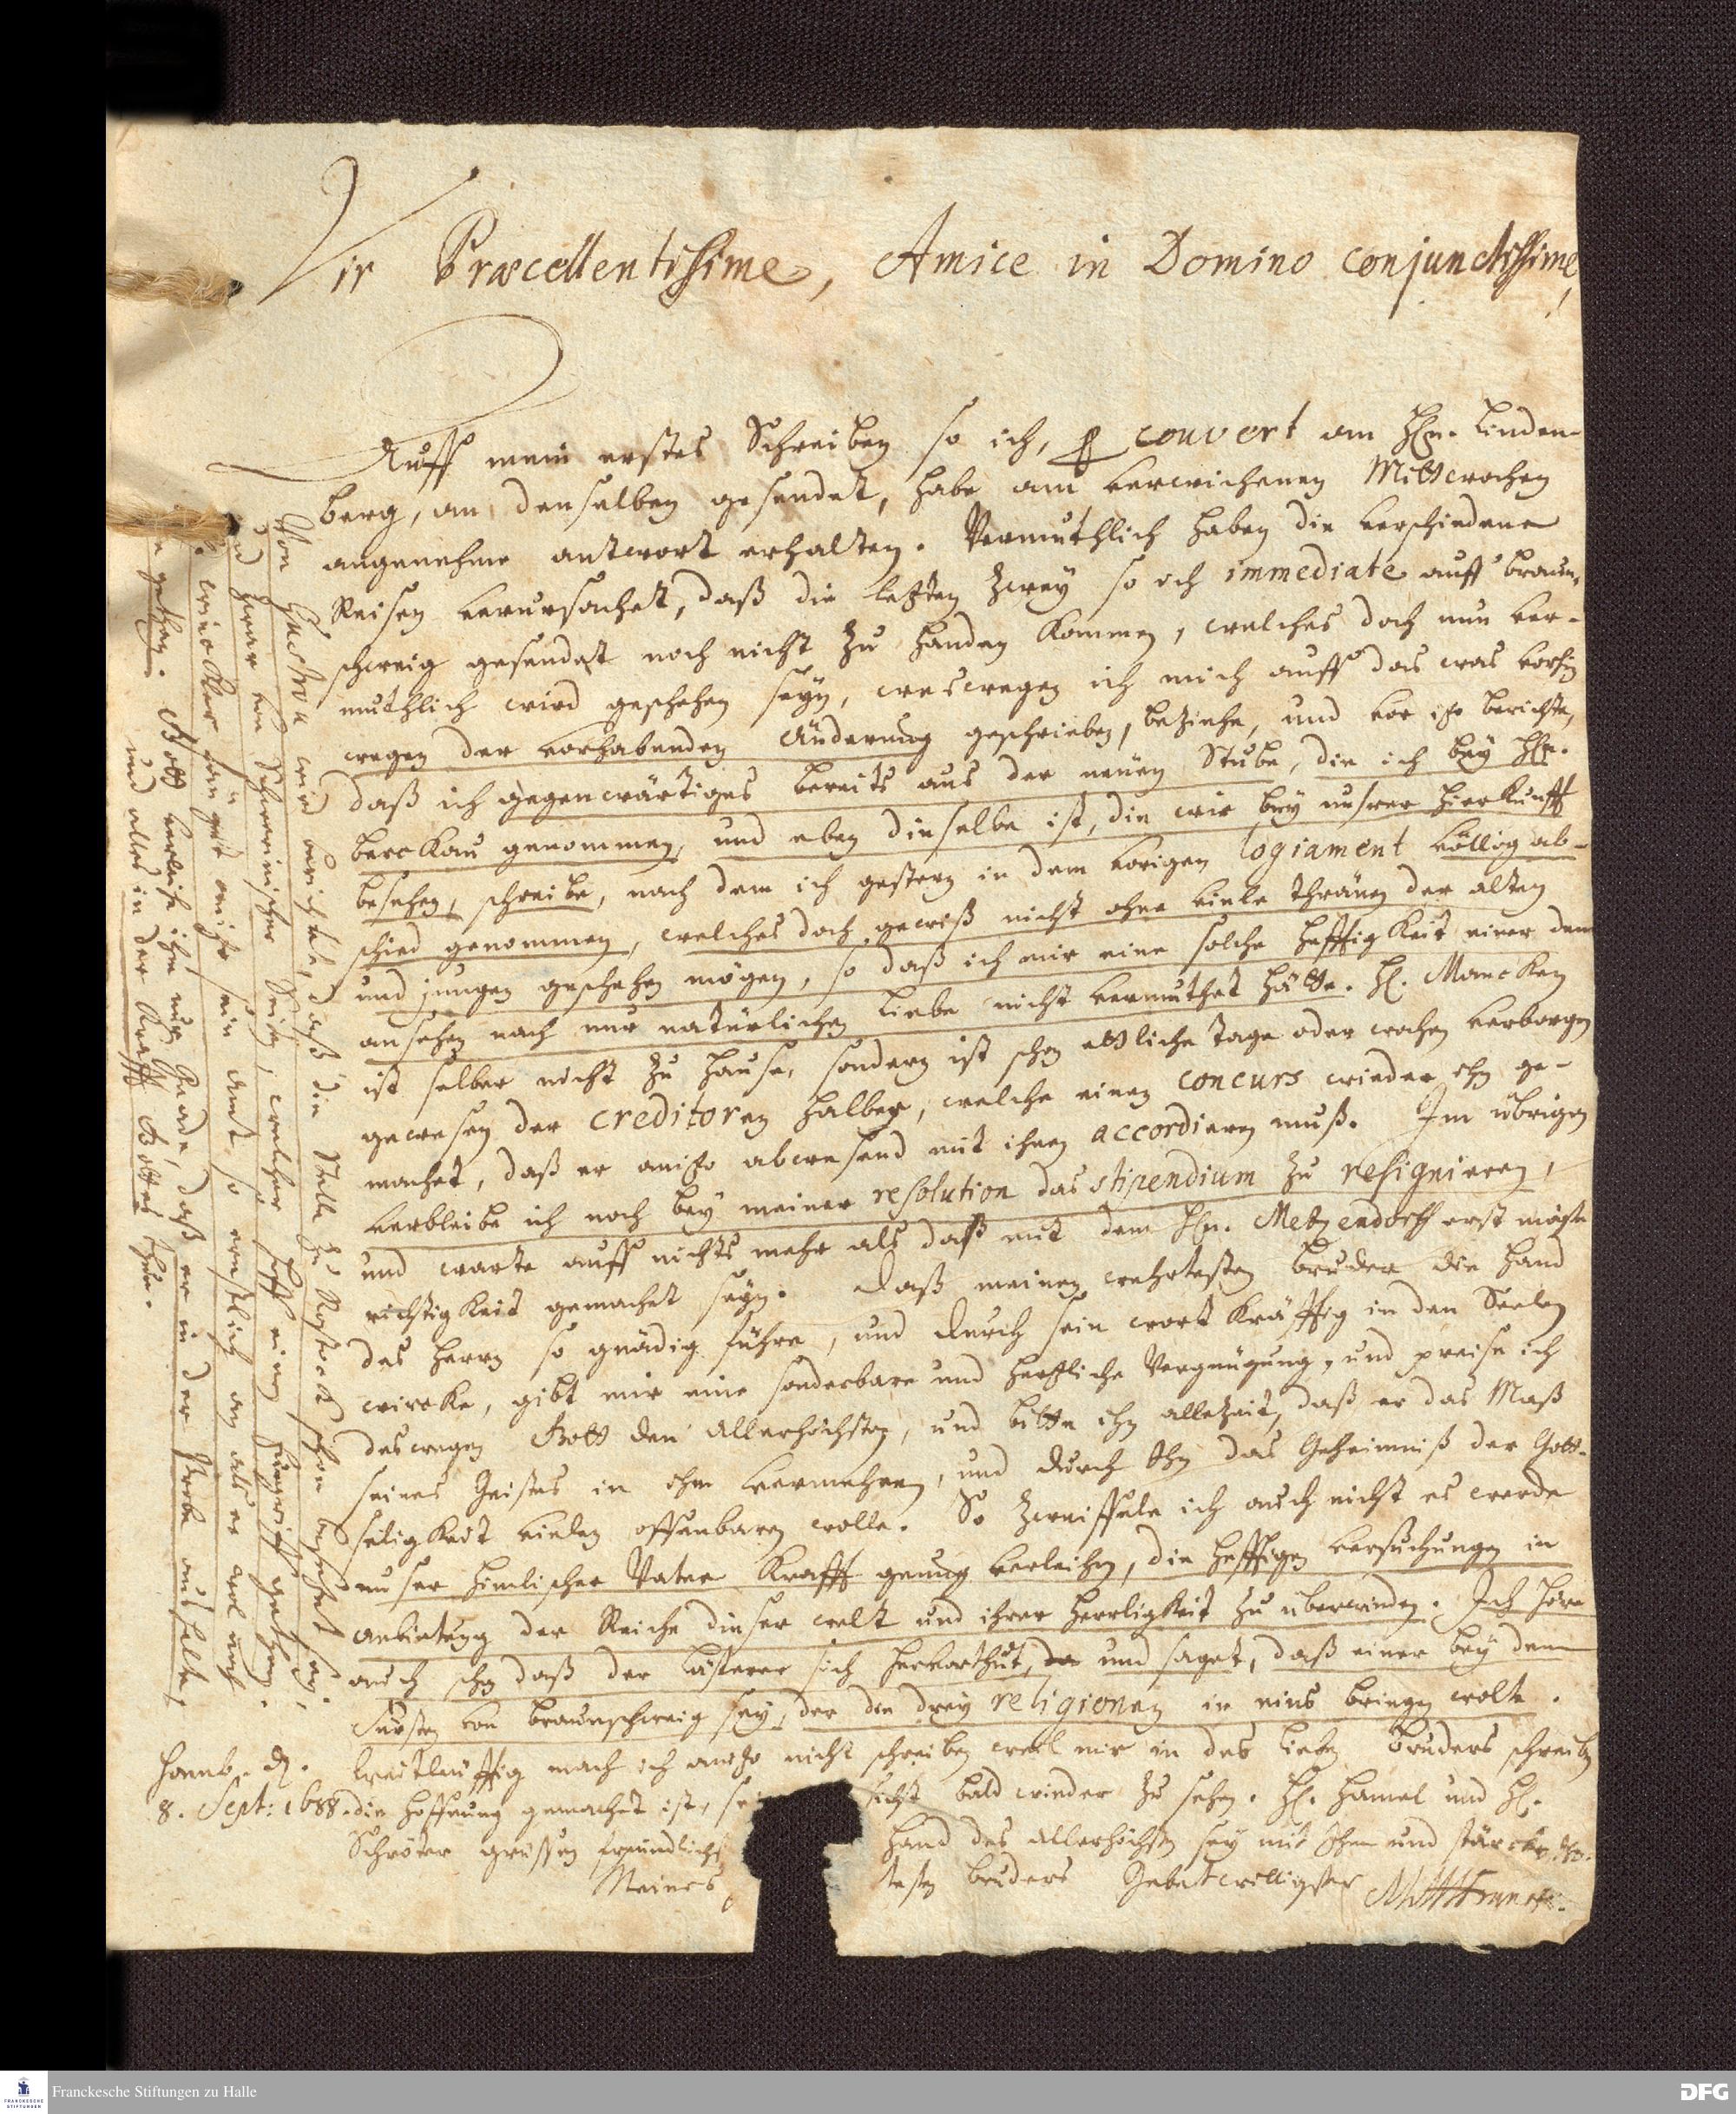 Vir Præcellentissime, Amice in Domino conjunctissime,
Auff mein erstes Schreiben so ich, per couvert an Hln. Linden-
berg, an denselben gesendet, habe am verwichenen Mittwochen
angenehme antwort erhalten. Vermuthlich haben die verschiedene
Reisen verursachet, daß die letzten zwey so ich immediate auff braun-
schweig gesendet noch nicht zu handen kommen, welches doch nun ver-
muthlich wird geschehen seyn, weswegen ich mich auff das was vorhin
wegen der vorhabenden Änderung geschrieben, beziehe, und vor itzo berichte,
daß ich gegenwärtiges bereits aus der neuen Stube, die ich bey Hln.
berckau genommen, und eben dieselbe ist, die wir bey unsrer hierkunfft
besehen, schreibe, nach dem ich gestern in dem vorigen logiament völlig ab-
schied genommen, welches doch gewiß nicht ohne viele thränen der alten
und jungen geschehen mögen, so daß ich mir eine solche hefftigkeit einer dem
ansehen nach nur natürlichen Liebe nicht vermuthet hätte. Hl. Mancken
ist selber nicht zu hause, sondern ist schon ettliche tage oder wochen verborgen
gewesen der creditoren halber, welche einen concurs wieder ihn ge-
machet, daß er anitzo abwesend mit ihnen accordieren muß. Im übrigen
verbleibe ich noch bey meiner resolution das stipendium zu resignieren,
und warte auff nichts mehr als daß mit dem Hln. Metzendorff erst möge
richtigkeit gemachet seyn. Daß meinen wehrtesten bruder die hand
des Herrn so gnädig führe, und durch sein wort kräfftig in den Seelen
wircke, gibt mir eine sonderbare und hertzliche Vergnügung, und preise ich
deswegen Gott den Allerhöchsten, und bitte ihn allezeit, daß er das Maß
seines Geistes in ihm vermehren, und durch Ihn das Geheimniß der Gott-
seligkeit vielen offenbaren wolle. So zweiffele ich auch nicht es werde
unser himlischer Vater Krafft genug verleihen, die hefftigen versuchungen in
anbietung der Reiche dieser welt und ihrer herrligkeit zu überwinden. Ich höre
auch schon daß der lästerer sich hervorthut, und saget, daß einer bey dem
Fürsten von braunschweig sey, der die drey religionen in eins bringen wolte.
Weitläufftig mach ich anitzo nicht schreiben weil mir in des lieben bruders schreiben
die hoffnung gemachet ist, sein bald wieder zu sehen. Hl. Hamel und Hl.
Schröter grüssen freundlichst hand des allerhöchsten sey mit Ihm und stärcke Ihn.
Meines testen bruders Gebetwilligster
Hamb. d.
8. Sept: 1688.
Von Güstrow wird berichtet, daß die Stelle zu Rostock schon besetzet sey,
und zwar von Schwerinischer Seiten, welcher hofft einen Eingriff gethan.
Winckler fängt anitzo sein Amt so ernstlich an als er wol nie
gethan. Gott verleihe ihm nur Gnade, daß er in der Probe aushalte,
und alles in der Krafft Gottes thue.
Franckesche Stiftungen zu Halle
FRANCKESCHE STIFTUNGEN
DFG